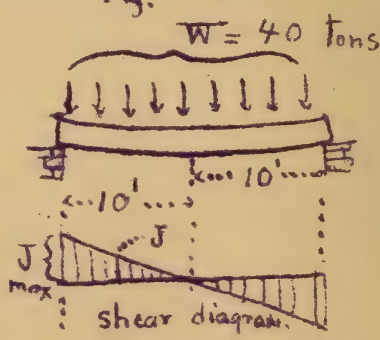 Fig.
W = 40 Tons
10'
10'
J
J
max
shear diagram.